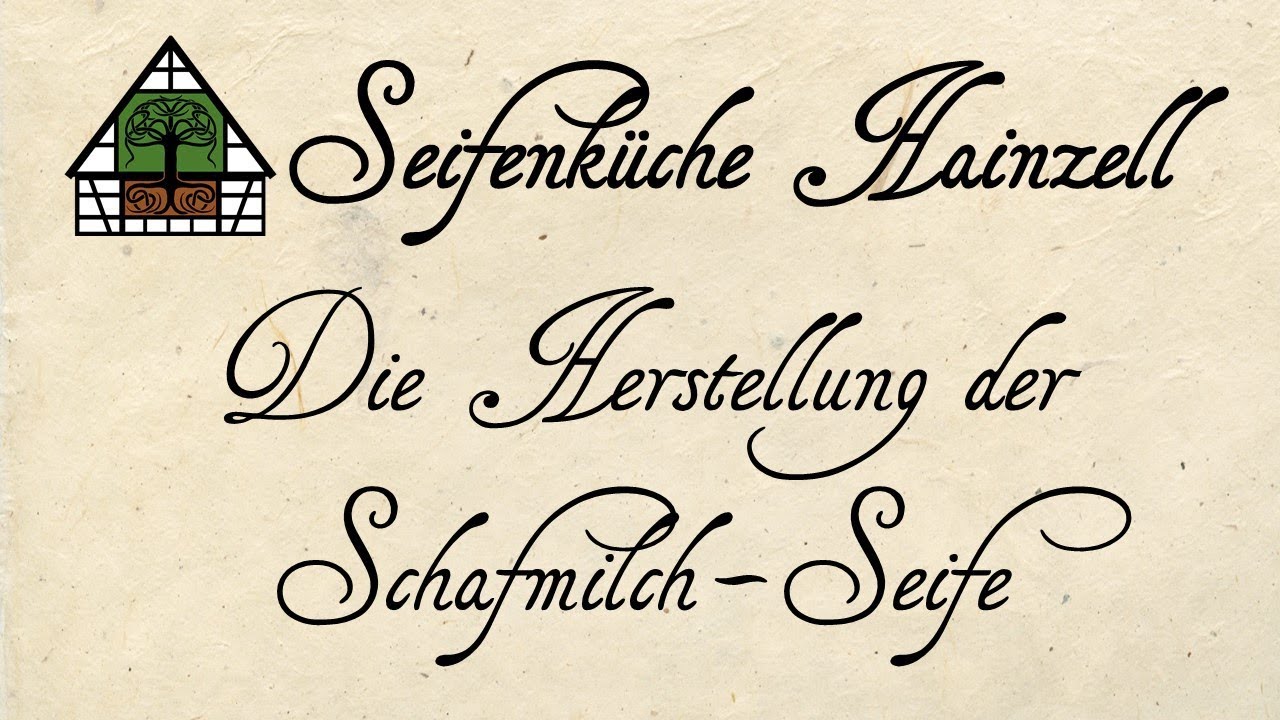 Seifenküche Hainzell
Die Herstellung der
Schafmilch-Seife